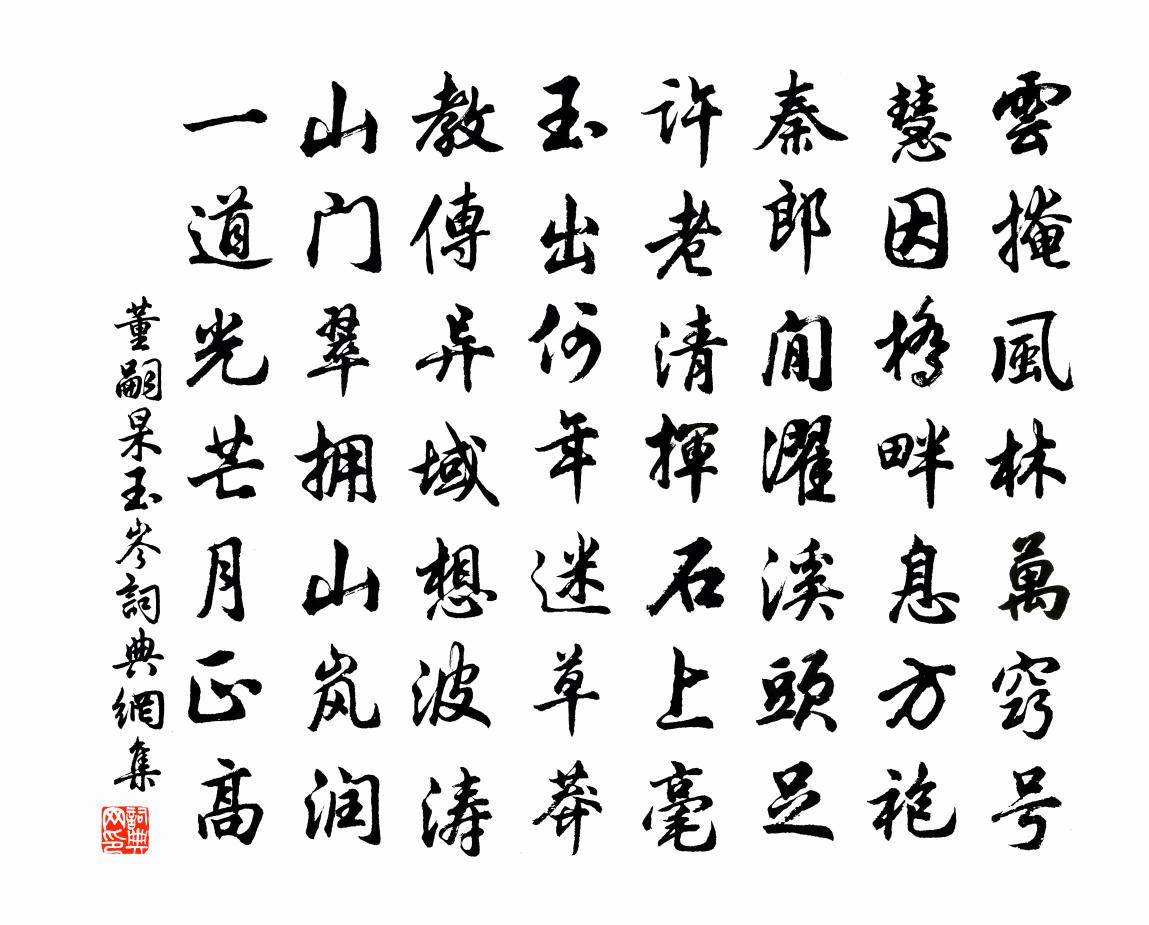 雲掩風林萬竅号
慧因橋畔息方袍
秦郎閒濯溪頭足
许老清揮石上毫
玉出何年迷草莽
教傳异域想波涛
山门翠拥山岚润
一道光芒月正高
董嗣杲玉岑詞典網集
詞典网印